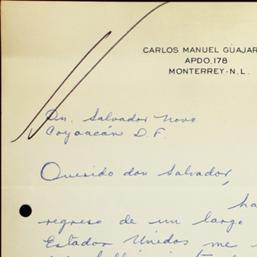 CARLOS MANUEL GUAJAR
APDO. 178
MONTERREY - N. L.
Dn. Salvador Novo
Coyoacán D. F.
Querido don Salvador,
ha
regreso de un largo
Estados Unidos me